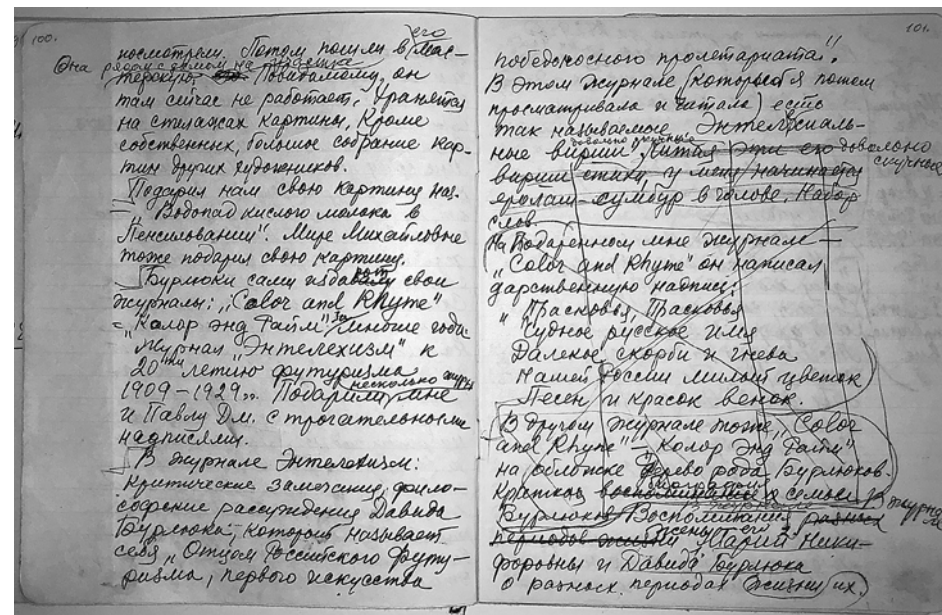 100.
посмотрели. Потом пошли в его мас-
Она рядом с домом на
терскую. Повидимому, он
там сейчас не работает. Хранятся
на стилажах картины, кроме
собственных, большое собрание кар-
тин других художников.
Подарил нам свою картину наз.
„Водопад кислого молока в
Пенсильвании". Мире Михайловне
тоже подарил свою картину.
Бурлюки сами издают свои
журналы: „Color and Rhyme"
„Колор энд Райм" за многие годы
журнал „Энтелехизм" к
20ти летию футуризма
1909–1929 Подарили несколько мне
и Павлу Дм. с трогательными
надписями.
В журнале Энтелехизм:
критические замечания, фило-
софские рассуждения Давида
Бурлюка, который называет
себя „Отцом Российского Футу-
ризма, первого искусства
101.
победоносного пролетариата".
В этом журнале (который я потом
просматривала и читала) есть
так называемые „Энтелехиаль-
ные вирши" довольно скучные
Читая эти его довольно скучные
вирши стихи у меня начинается
ералаш – сумбур в голове. Набор
слов.
На подаренном мне журнале –
„Color and Rhyme" он написал
дарственную надпись:
„Прасковья, Прасковья
Чудное русское имя
Далекое скорби и гнева
Нашей России милый цветок
Песен и красок венок.
В другом журнале тоже „Color
and Rhyme" – „Колор энд Райм"
на обложке дерево рода Бурлюков.
Краткая биография воспоминание о семье В журнале
Бурлюков Воспоминания разных
периодов жизни Марии Ники-
форовны и Давида Бурлюка
о разных периодах жизни их.